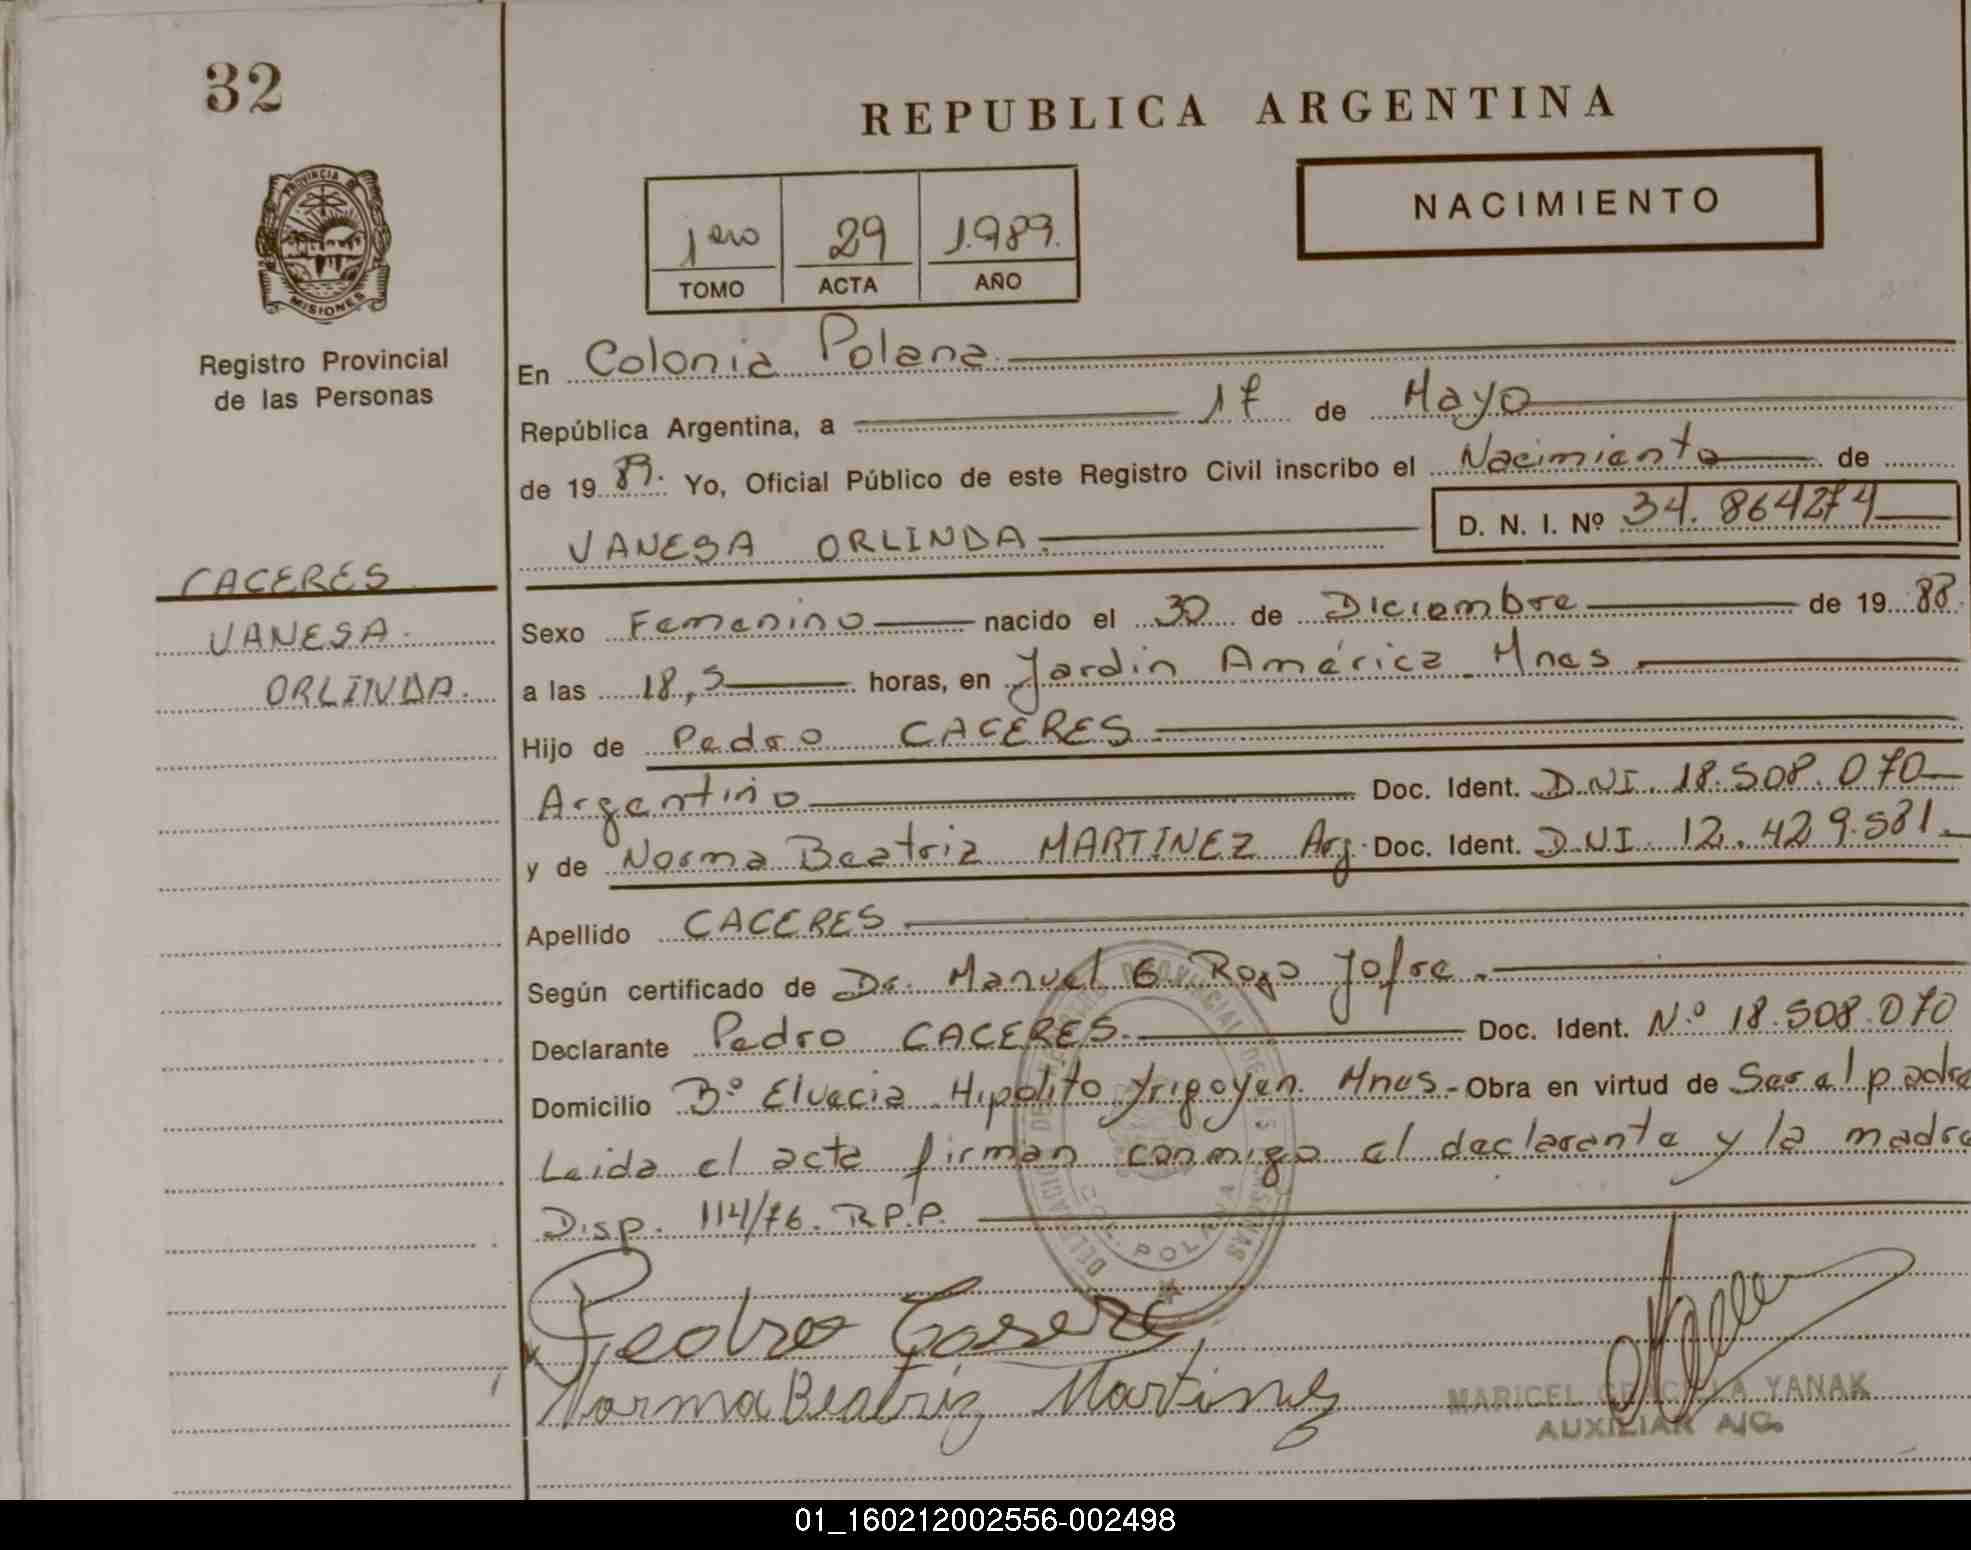 32
REPUBLICA ARGENTINA
NACIMIENTO
1ero 29 1.989.
TOMO ACTA AÑO
PROVINCIA DE
MISIONES
Registro Provincial
de las Personas
En Colonia Polana.
República Argentina, a 17 de Mayo
de 19 89. Yo, Oficial Público de este Registro Civil inscribo el Nacimiento de
VANESA ORLINDA. D. N. I. Nº 34. 864274
CACERES
VANESA.
ORLINDA.
Sexo Femenino nacido el 30 de Diciembre de 19 88.
a las 18,5 horas, en Jardin América Mnes
Hijo de Pedro CACERES
Argentino Doc. Ident. D.N.I. 18.508.070
y de Norma Beatriz MARTINEZ Arg. Doc. Ident. D.N.I. 12.429.581.
Apellido CACERES
Según certificado de Dr. Manuel G Rojo Jofre.
Declarante Pedro CACERES. Doc. Ident. N.º 18.508.070
Domicilio Bº Elvecia Hipolito Yrigoyen. Mnes.- Obra en virtud de Ser el padre
Leida el acta firman conmigo el declarante y la madre
Disp. 114/76. R.P.P.
COL. POLANA
Pedro Casere
Norma Beatriz Martinez
MARICEL GRACIELA YANAK
AUXILIAR A/C.
01_160212002556-002498